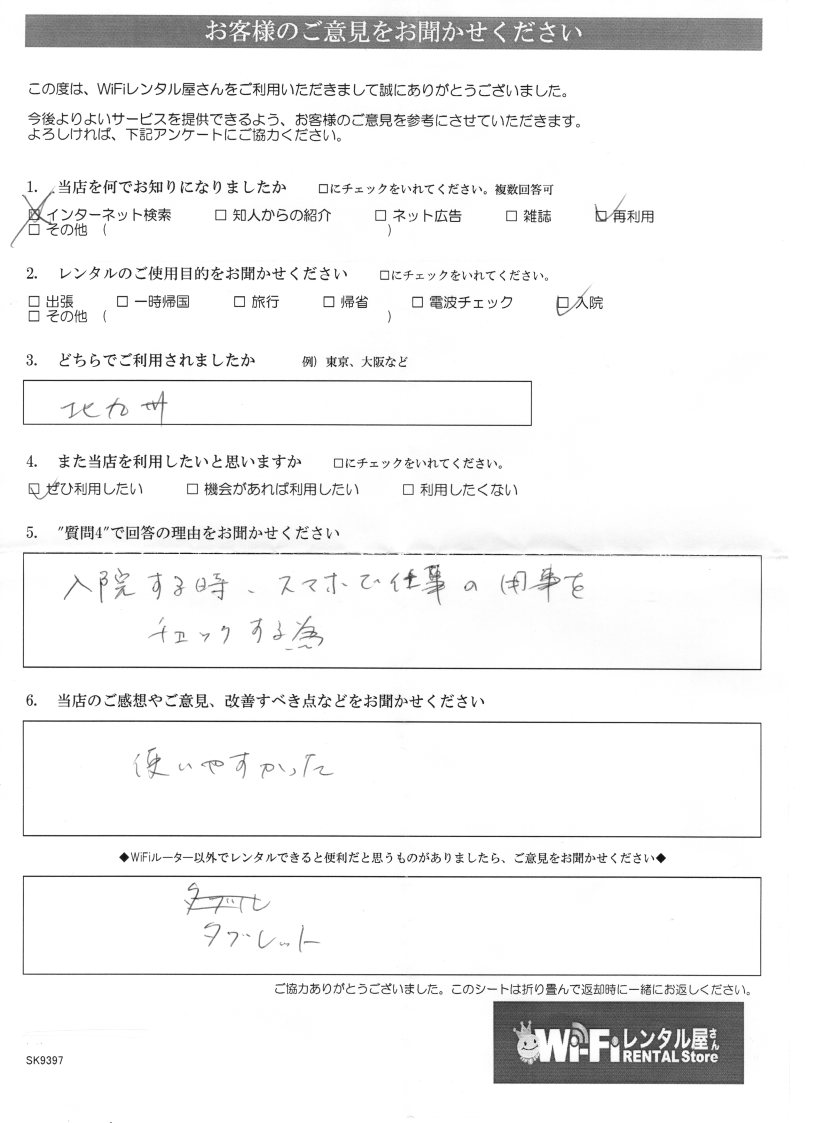 お客様のご意見をお聞かせください
この度は、WiFiレンタル屋さんをご利用いただきまして誠にありがとうございました。
今後よりよいサービスを提供できるよう、お客様のご意見を参考にさせていただきます。
よろしければ、下記アンケートにご協力ください。
1. 当店を何でお知りになりましたか □にチェックをいれてください。複数回答可
□ インターネット検索 □ 知人からの紹介 □ ネット広告 □ 雑誌 □ 再利用
□ その他 ( )
2. レンタルのご使用目的をお聞かせください □にチェックをいれてください。
□ 出張 □ 一時帰国 □ 旅行 □ 帰省 □ 電波チェック □ 入院
□ その他 ( )
3. どちらでご利用されましたか 例）東京、大阪など
北九州
4. また当店を利用したいと思いますか □にチェックをいれてください。
□ ぜひ利用したい □ 機会があれば利用したい □ 利用したくない
5. "質問4"で回答の理由をお聞かせください
入院する時、スマホで仕事の用事を
チェックする為
6. 当店のご感想やご意見、改善すべき点などをお聞かせください
使いやすかった
◆WiFiルーター以外でレンタルできると便利だと思うものがありましたら、ご意見をお聞かせください◆
タブレット
ご協力ありがとうございました。このシートは折り畳んで返却時に一緒にお返しください。
Wi-Fiレンタル屋さん
RENTAL Store
SK9397